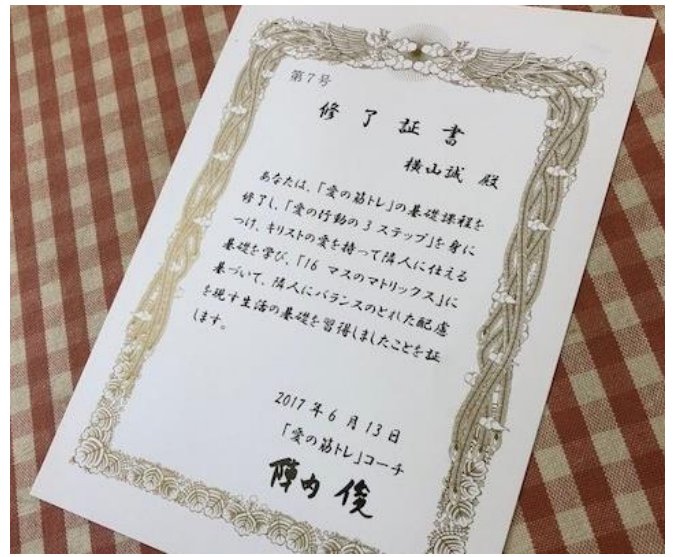 第7号
修了証書
横山誠 殿
あなたは、「愛の筋トレ」の基礎課程を
修了し、「愛の行動の3ステップ」を身に
つけ、キリストの愛を持って隣人に仕える
基礎を学び、「16マスのマトリックス」に
基づいて、隣人にバランスのとれた配慮
を現す生活の基礎を習得しましたことを証
します。
2017年6月13日
「愛の筋トレ」コーチ
陣内俊